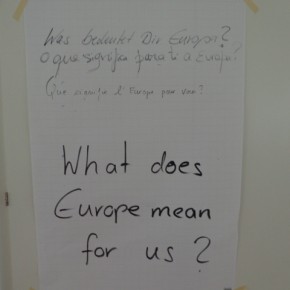 Was bedeutet Dir Europa?
O que significa para ti a Europa?
Que significa l' Europa per voi?
What does
Europe mean
for us?